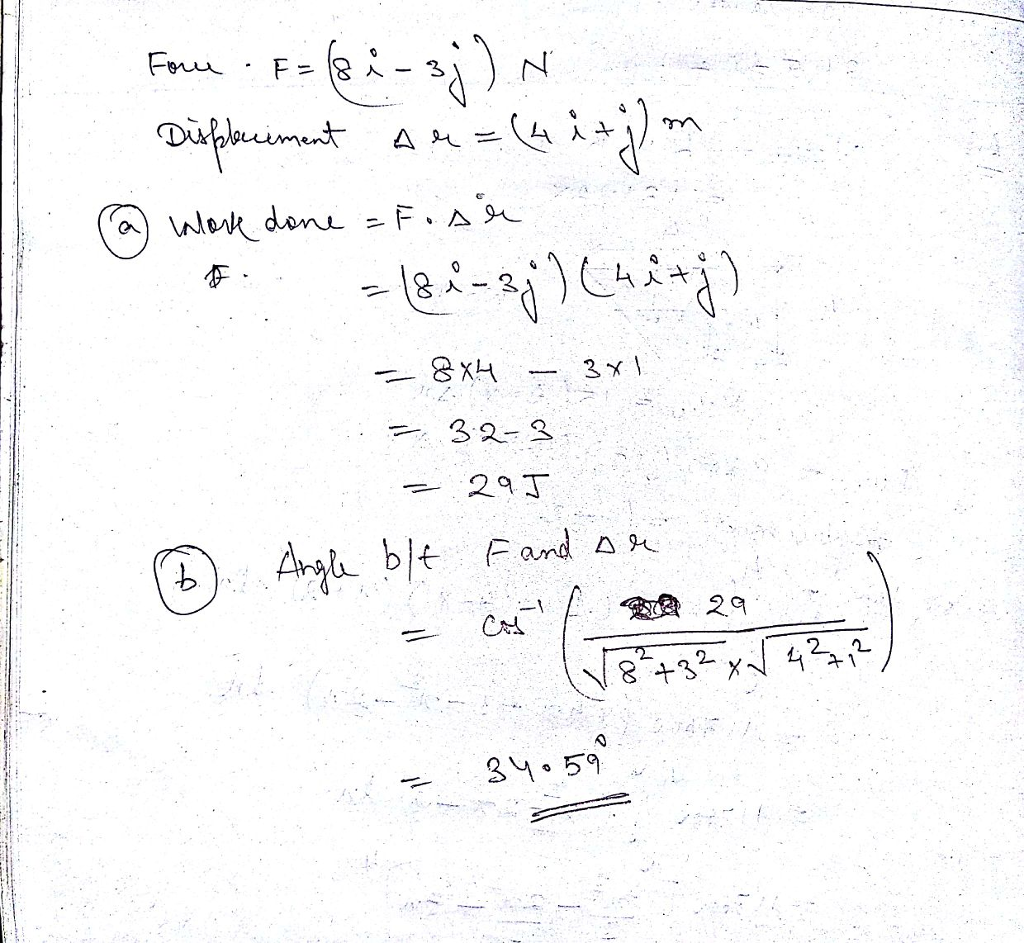 Force . F = (8i - 3j) N
Displacement Δr = (4i + j) m
(a) Work done = F . Δr
= (8i - 3j) (4i + j)
= 8x4 - 3x1
= 32 - 3
= 29J
(b) Angle b/t F and Δr
= cos⁻¹ ( 29 / √8²+3² x √4²+1² )
= 34.59°